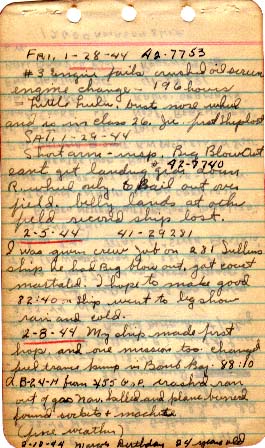 Fri. 1-28-44 42-7753
#3 engine fails, crushed oil screen
engine change - 196 hours
- Little Hulen, bust nose wheel
and is in class 26.
Sat. 1-29-44
Short arm - insp. Big Blow Out
#42-7740
cant get landing gear down
R. wheel only, to bail out over
field. belly lands at other
field second ship lost.
2-5-44 41-29281
I was given crew job on a 281
ship he had Big blow out, got court
martialed. I hope to make good
82:40 on ship went to big show
rain and cold.
2-8-44 My ship made first
hop and one mission too. changed
fuel trans. pump in Bomb Bay 88:10
a B-24-H from 455 Gp. crashed, ran
out of gas Nav. killed and plane burned
found and machine
(fine weather)
2-10-44 Birthday 24 years old